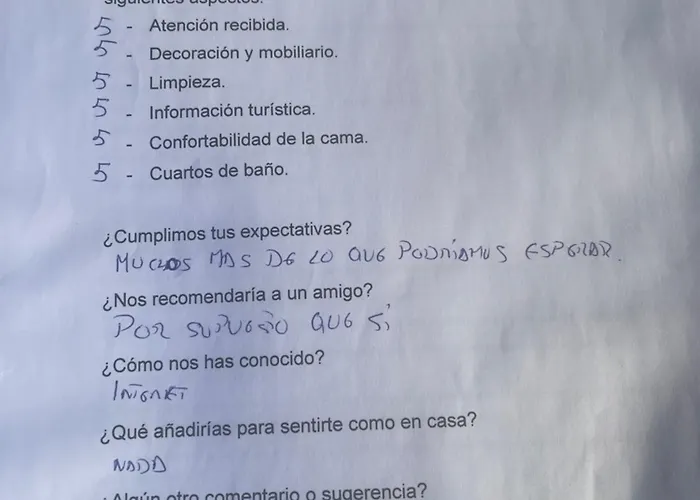 siguientes aspectos:
5 - Atención recibida.
5 - Decoración y mobiliario.
5 - Limpieza.
5 - Información turística.
5 - Confortabilidad de la cama.
5 - Cuartos de baño.
¿Cumplimos tus expectativas?
MUCHOS MAS DE LO QUE PODRÍAMUS ESPERAR.
¿Nos recomendaría a un amigo?
POR SUPUESTO QUE SÍ
¿Cómo nos has conocido?
INTERNET
¿Qué añadirías para sentirte como en casa?
NADA
¿Algún otro comentario o sugerencia?